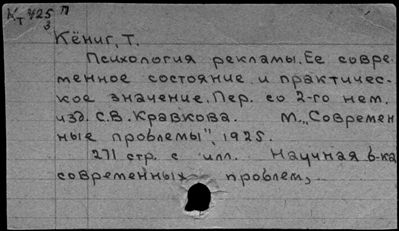 К/т 425 П
3
Кёниг, Т.
Психология рекламы. Ее совре-
менное состояние и практичес-
кое значение. Пер. со 2-го нем.
изд. С.В. Кравкова. М., „Современ
ные проблемы", 1925.
271 стр. с илл. Научная б-ка
современных проблем,